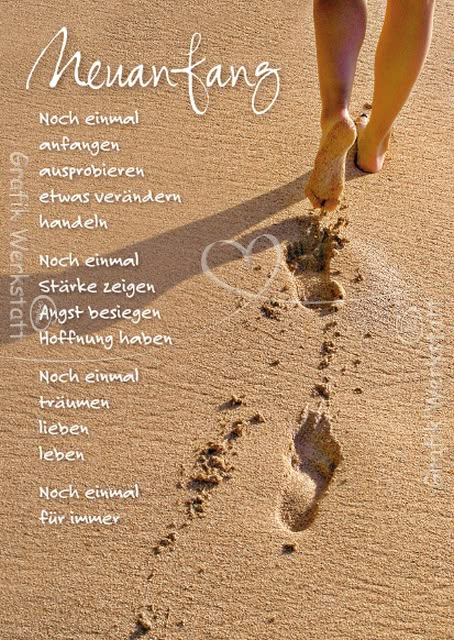 Neuanfang
Noch einmal
anfangen
ausprobieren
etwas verändern
handeln
Noch einmal
Stärke zeigen
Angst besiegen
Hoffnung haben
Noch einmal
träumen
lieben
leben
Noch einmal
für immer
Grafik Werkstatt
Grafik Werkstatt